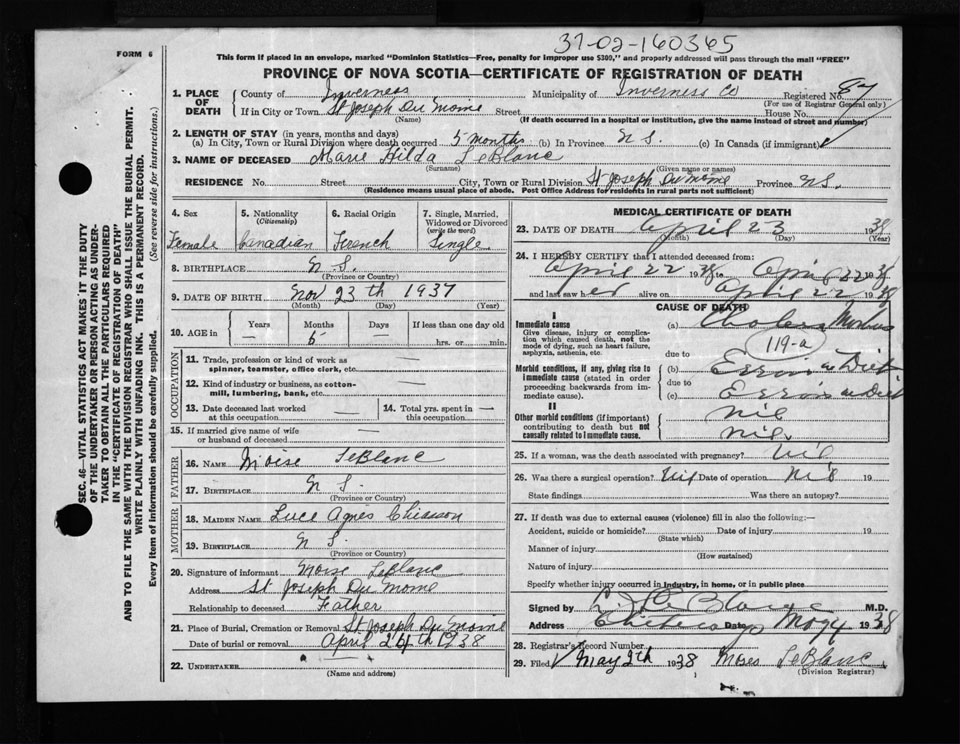 37-02-160365
FORM 6
This form if placed in an envelope, marked "Dominion Statistics—Free, penalty for improper use $300," and properly addressed will pass through the mail "FREE"
PROVINCE OF NOVA SCOTIA—CERTIFICATE OF REGISTRATION OF DEATH
1. PLACE OF DEATH County of Inverness Municipality of Inverness Co Registered No. 87
(For use of Registrar General only)
If in City or Town St Joseph Du Moine Street House No.
(Name) (If death occurred in a hospital or institution, give the name instead of street and number)
2. LENGTH OF STAY (in years, months and days)
(a) In City, Town or Rural Division where death occurred 5 months (b) In Province N S. (c) In Canada (if immigrant)
3. NAME OF DECEASED Marie Hilda LeBlanc
(Surname) (Given name or names)
RESIDENCE No. Street City, Town or Rural Division St Joseph Du Moine Province N S.
(Residence means usual place of abode. Post Office Address for residents in rural parts not sufficient)
4. Sex 5. Nationality (Citizenship) 6. Racial Origin 7. Single, Married, Widowed or Divorced (write the word)
Female Canadian French Single
8. BIRTHPLACE N S.
(Province or Country)
9. DATE OF BIRTH Nov 23th 1937
(Month) (Day) (Year)
10. AGE in Years Months Days If less than one day old
— 5 — hrs. or min.
OCCUPATION
11. Trade, profession or kind of work as spinner, teamster, office clerk, etc. —
12. Kind of industry or business, as cotton-mill, lumbering, bank, etc. —
13. Date deceased last worked at this occupation — 14. Total yrs. spent in this occupation —
15. If married give name of wife or husband of deceased —
FATHER
16. NAME Moise LeBlanc
17. BIRTHPLACE N S.
(Province or Country)
MOTHER
18. MAIDEN NAME Luce Agnes Chiasson
19. BIRTHPLACE N S.
(Province or Country)
20. Signature of informant Moise LeBlanc
Address St Joseph Du Moine
Relationship to deceased Father
21. Place of Burial, Cremation or Removal St Joseph Du Moine
Date of burial or removal April 24th 1938
22. UNDERTAKER —
(Name and address)
MEDICAL CERTIFICATE OF DEATH
23. DATE OF DEATH April 23 1938
(Month) (Day) (Year)
24. I HEREBY CERTIFY that I attended deceased from:
April 22 1938 to April 22 1938
and last saw her alive on April 22 1938
CAUSE OF DEATH
I
Immediate cause
Give disease, injury or complication which caused death, not the mode of dying, such as heart failure, asphyxia, asthenia, etc.
(a) Cholera Morbus
119-a
due to
Morbid conditions, if any, giving rise to immediate cause (stated in order proceeding backwards from immediate cause).
(b) Error in Diet
due to
(c) Error in Diet
II
Other morbid conditions (if important) contributing to death but not causally related to immediate cause.
nil
nil
25. If a woman, was the death associated with pregnancy? nil
26. Was there a surgical operation? nil Date of operation nil 19
State findings Was there an autopsy?
27. If death was due to external causes (violence) fill in also the following:—
Accident, suicide or homicide? Date of injury 19
(State which)
Manner of injury
(How sustained)
Nature of injury
Specify whether injury occurred in industry, in home, or in public place
Signed by LeBlanc M.D.
Address Cheticamp Date May 4 1938
28. Registrar's Record Number
29. Filed May 9th 1938 Moses LeBlanc
(Division Registrar)
SEC. 46—VITAL STATISTICS ACT MAKES IT THE DUTY
OF THE UNDERTAKER OR PERSON ACTING AS UNDER-
TAKER TO OBTAIN ALL THE PARTICULARS REQUIRED
IN THE "CERTIFICATE OF REGISTRATION OF DEATH"
AND TO FILE THE SAME WITH THE DIVISION REGISTRAR WHO SHALL ISSUE THE BURIAL PERMIT.
WRITE PLAINLY WITH UNFADING INK. THIS IS A PERMANENT RECORD.
Every item of information should be carefully supplied. (See reverse side for instructions.)